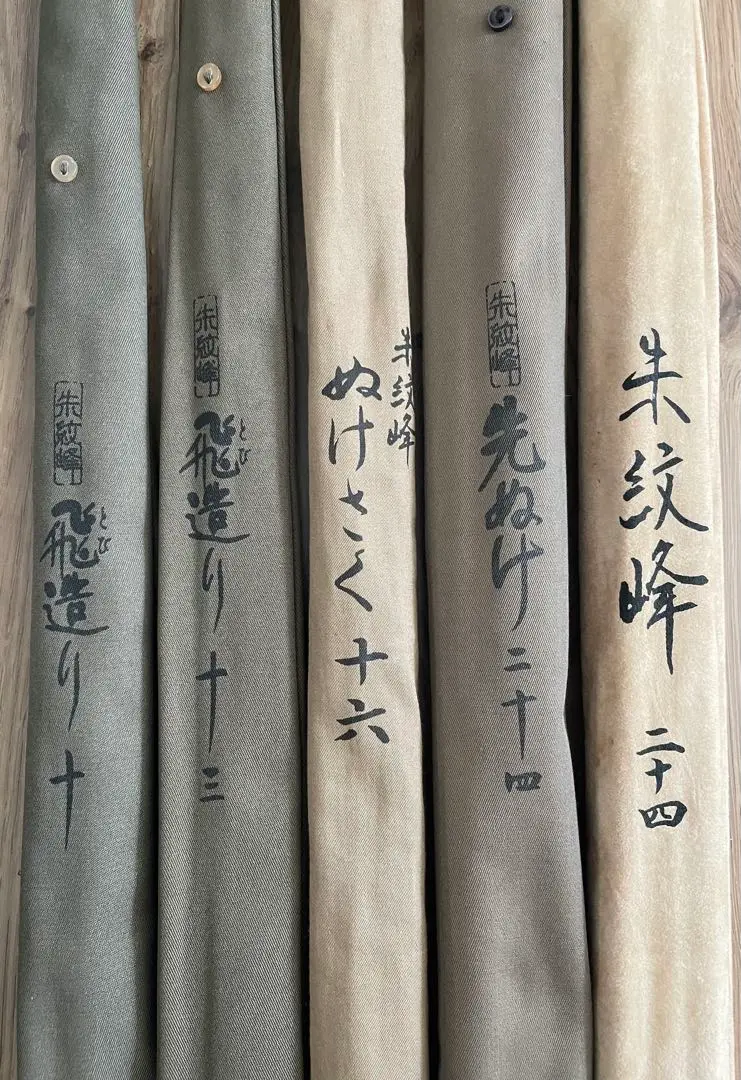 朱紋峰
飛造り十
とび
朱紋峰
飛造り十三
とび
朱紋峰
ぬけさく十六
朱紋峰
先ぬけ二十四
朱紋峰 二十四